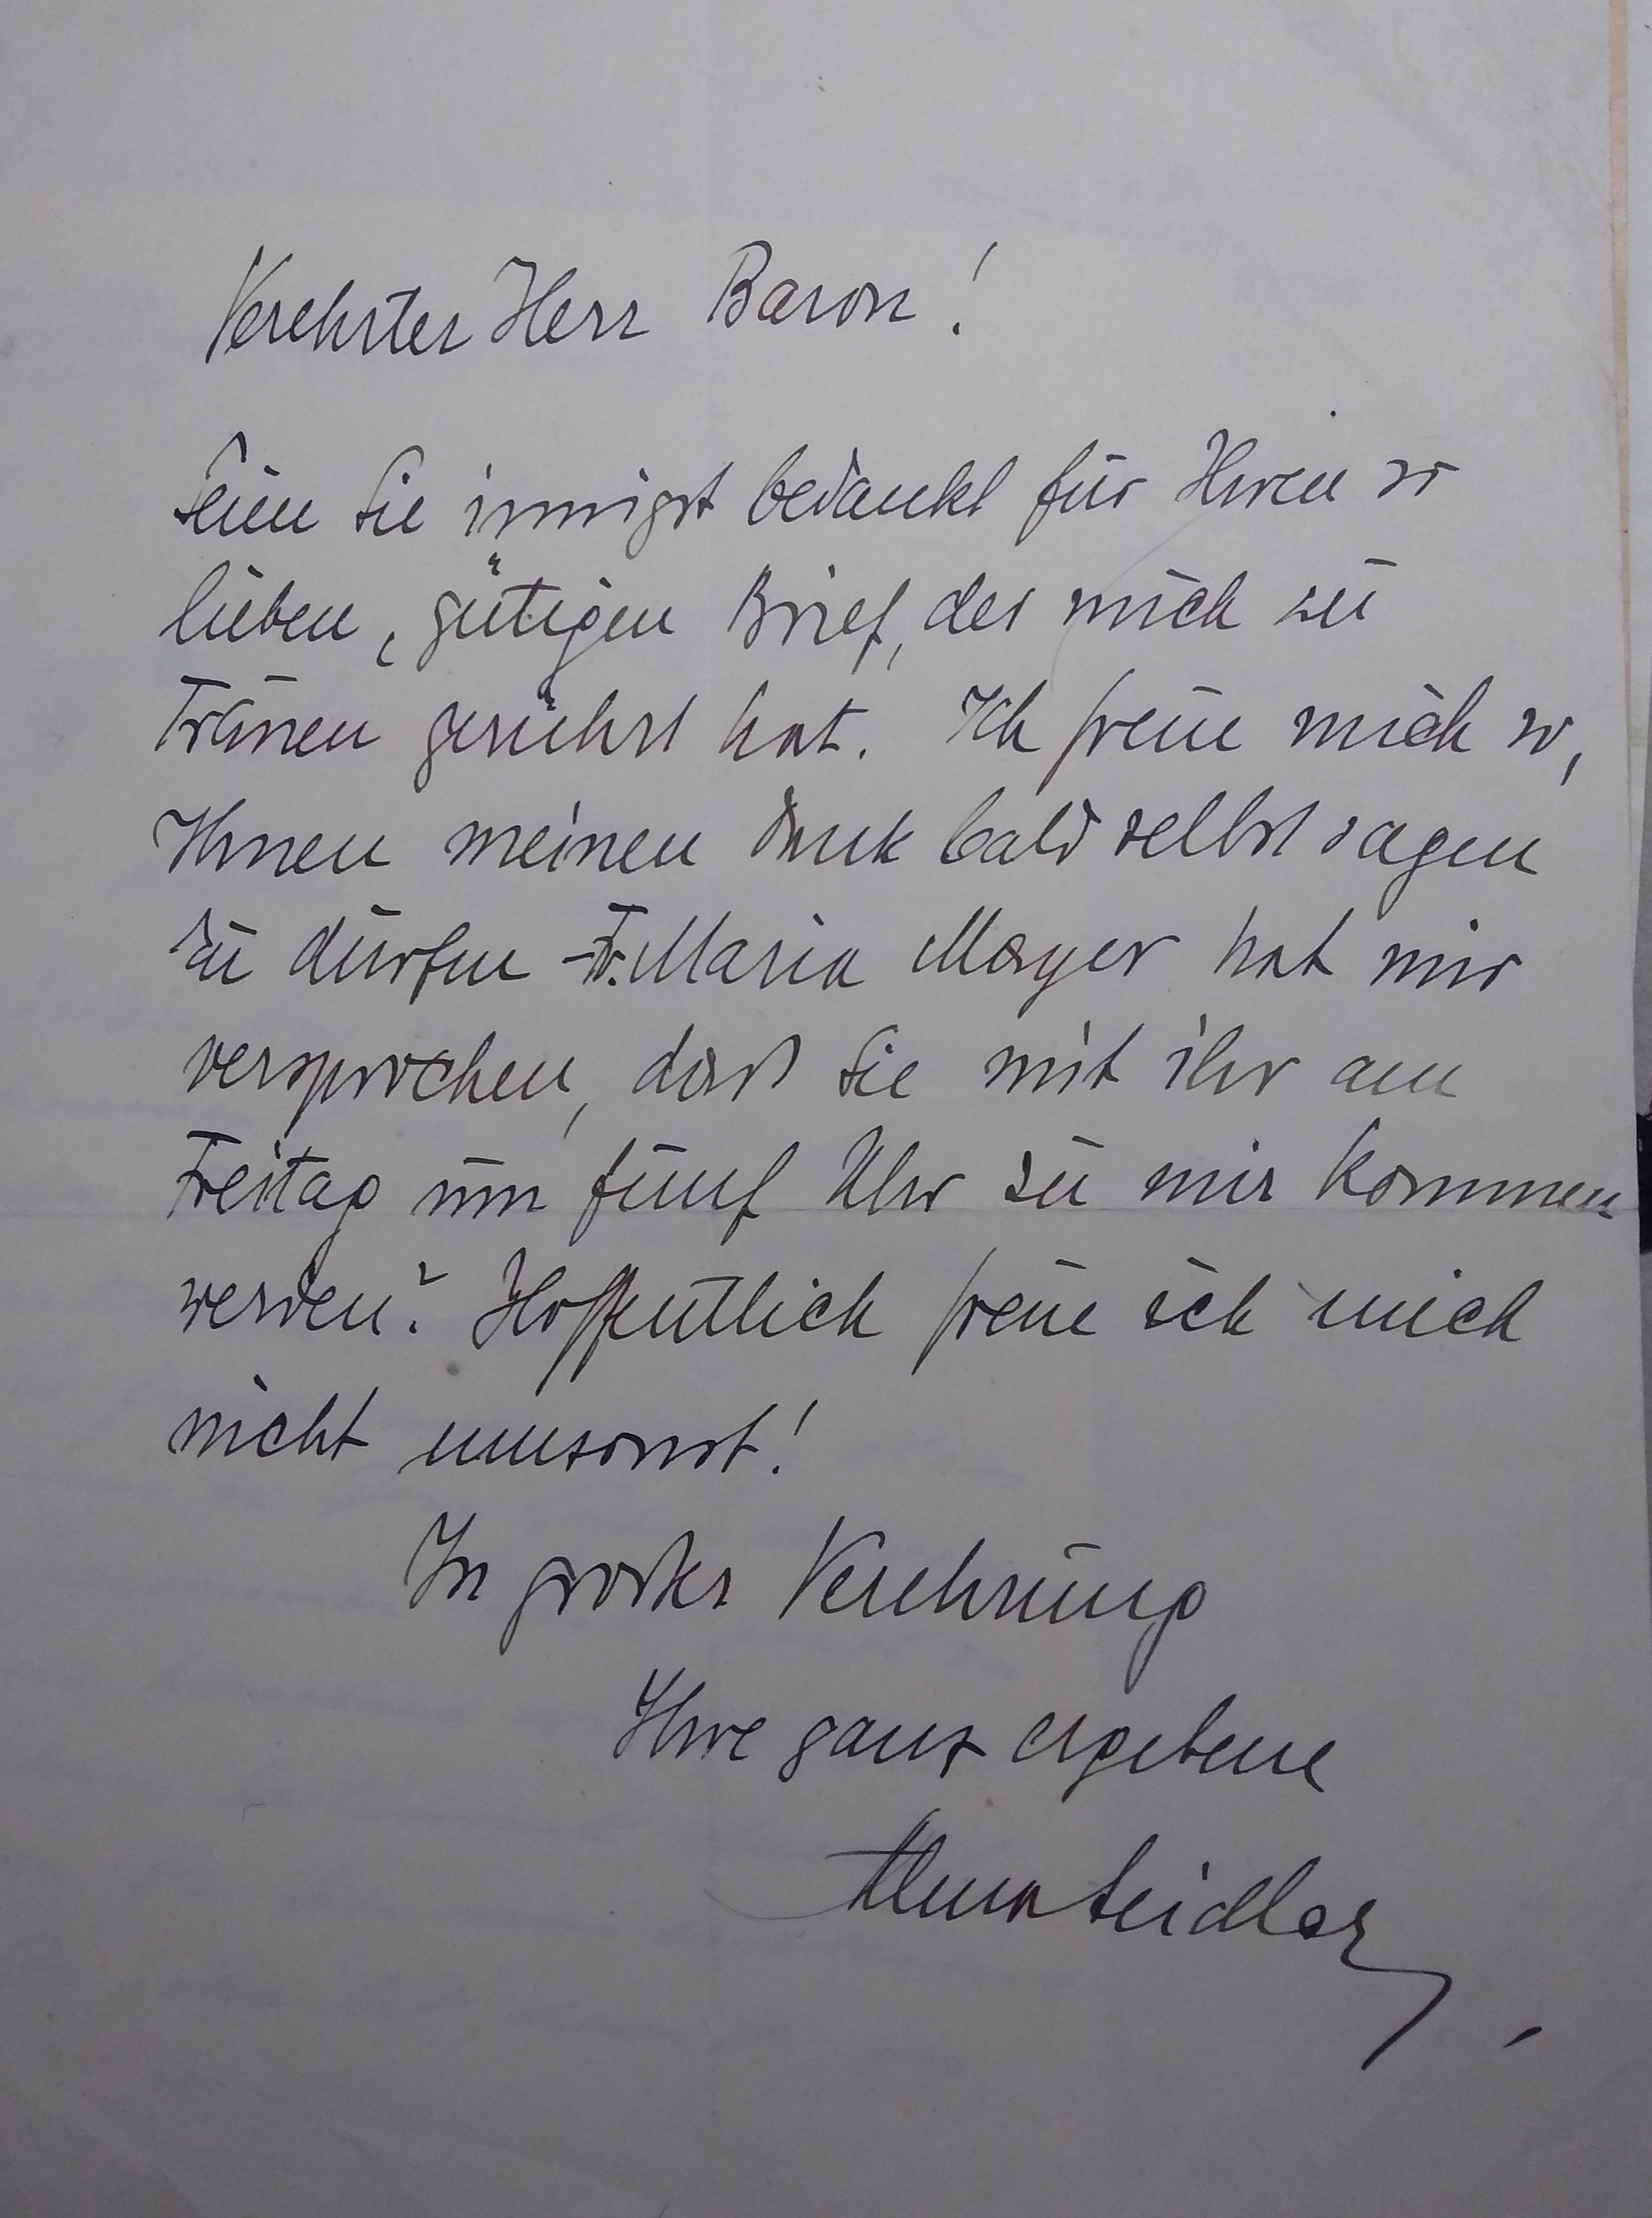 Verehrter Herr Baron!
Seien Sie innigst bedankt für Ihren so
lieben, gütigen Brief, der mich zu
Tränen gerührt hat. Ich freue mich so,
Ihnen meinen Dank bald selbst sagen
zu dürfen - Fr. Maria Mayer hat mir
versprochen, dass Sie mit ihr am
Freitag um fünf Uhr zu mir kommen
werden? Hoffentlich freue ich mich
nicht umsonst!
In großer Verehrung
Ihre ganz ergebene
Alma Seidler